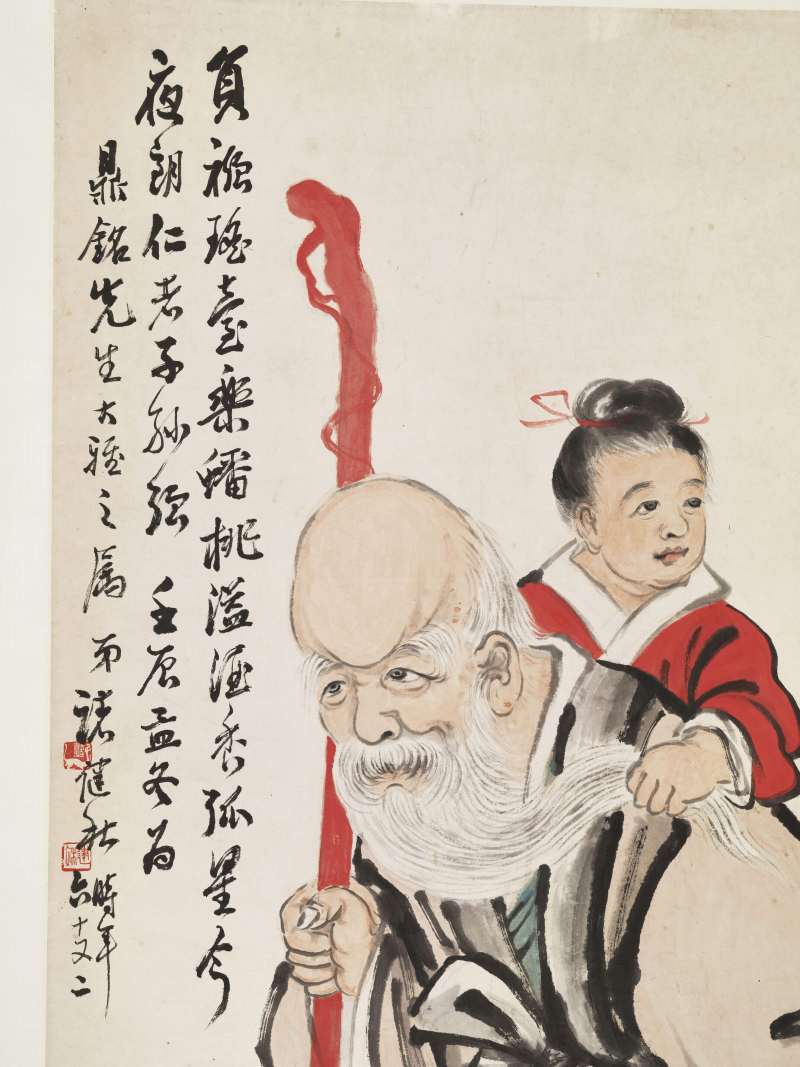 負襁瑤臺樂蟠桃溢酒香弧星今
夜朗仁者子孫強 壬辰孟冬為
鼎銘先生大雅之屬 弟諸健秋時年六十又二